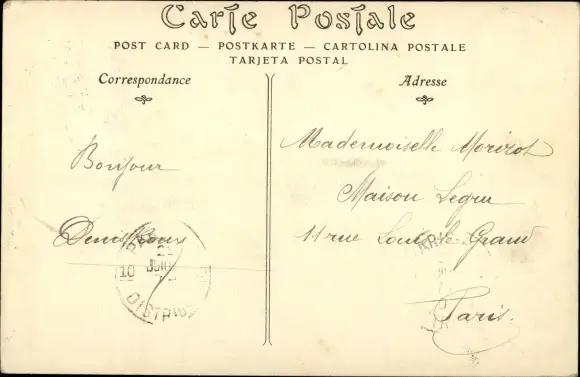 Carte Postale
POST CARD — POSTKARTE — CARTOLINA POSTALE
TARJETA POSTAL
Correspondance
Adresse
Bonjour
Denis
Mademoiselle Morizot
Maison Legru
11 rue Louis le Grand
Paris.
10
DISTRIB